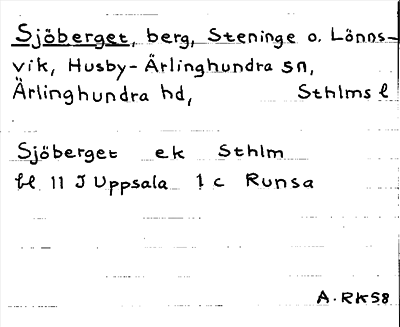 Sjöberget, berg, Steninge o. Lönns-
vik, Husby-Ärlinghundra sn,
Ärlinghundra hd, Sthlms l
Sjöberget ek Sthlm
bl 11 J Uppsala 1 c Runsa
A. RK58